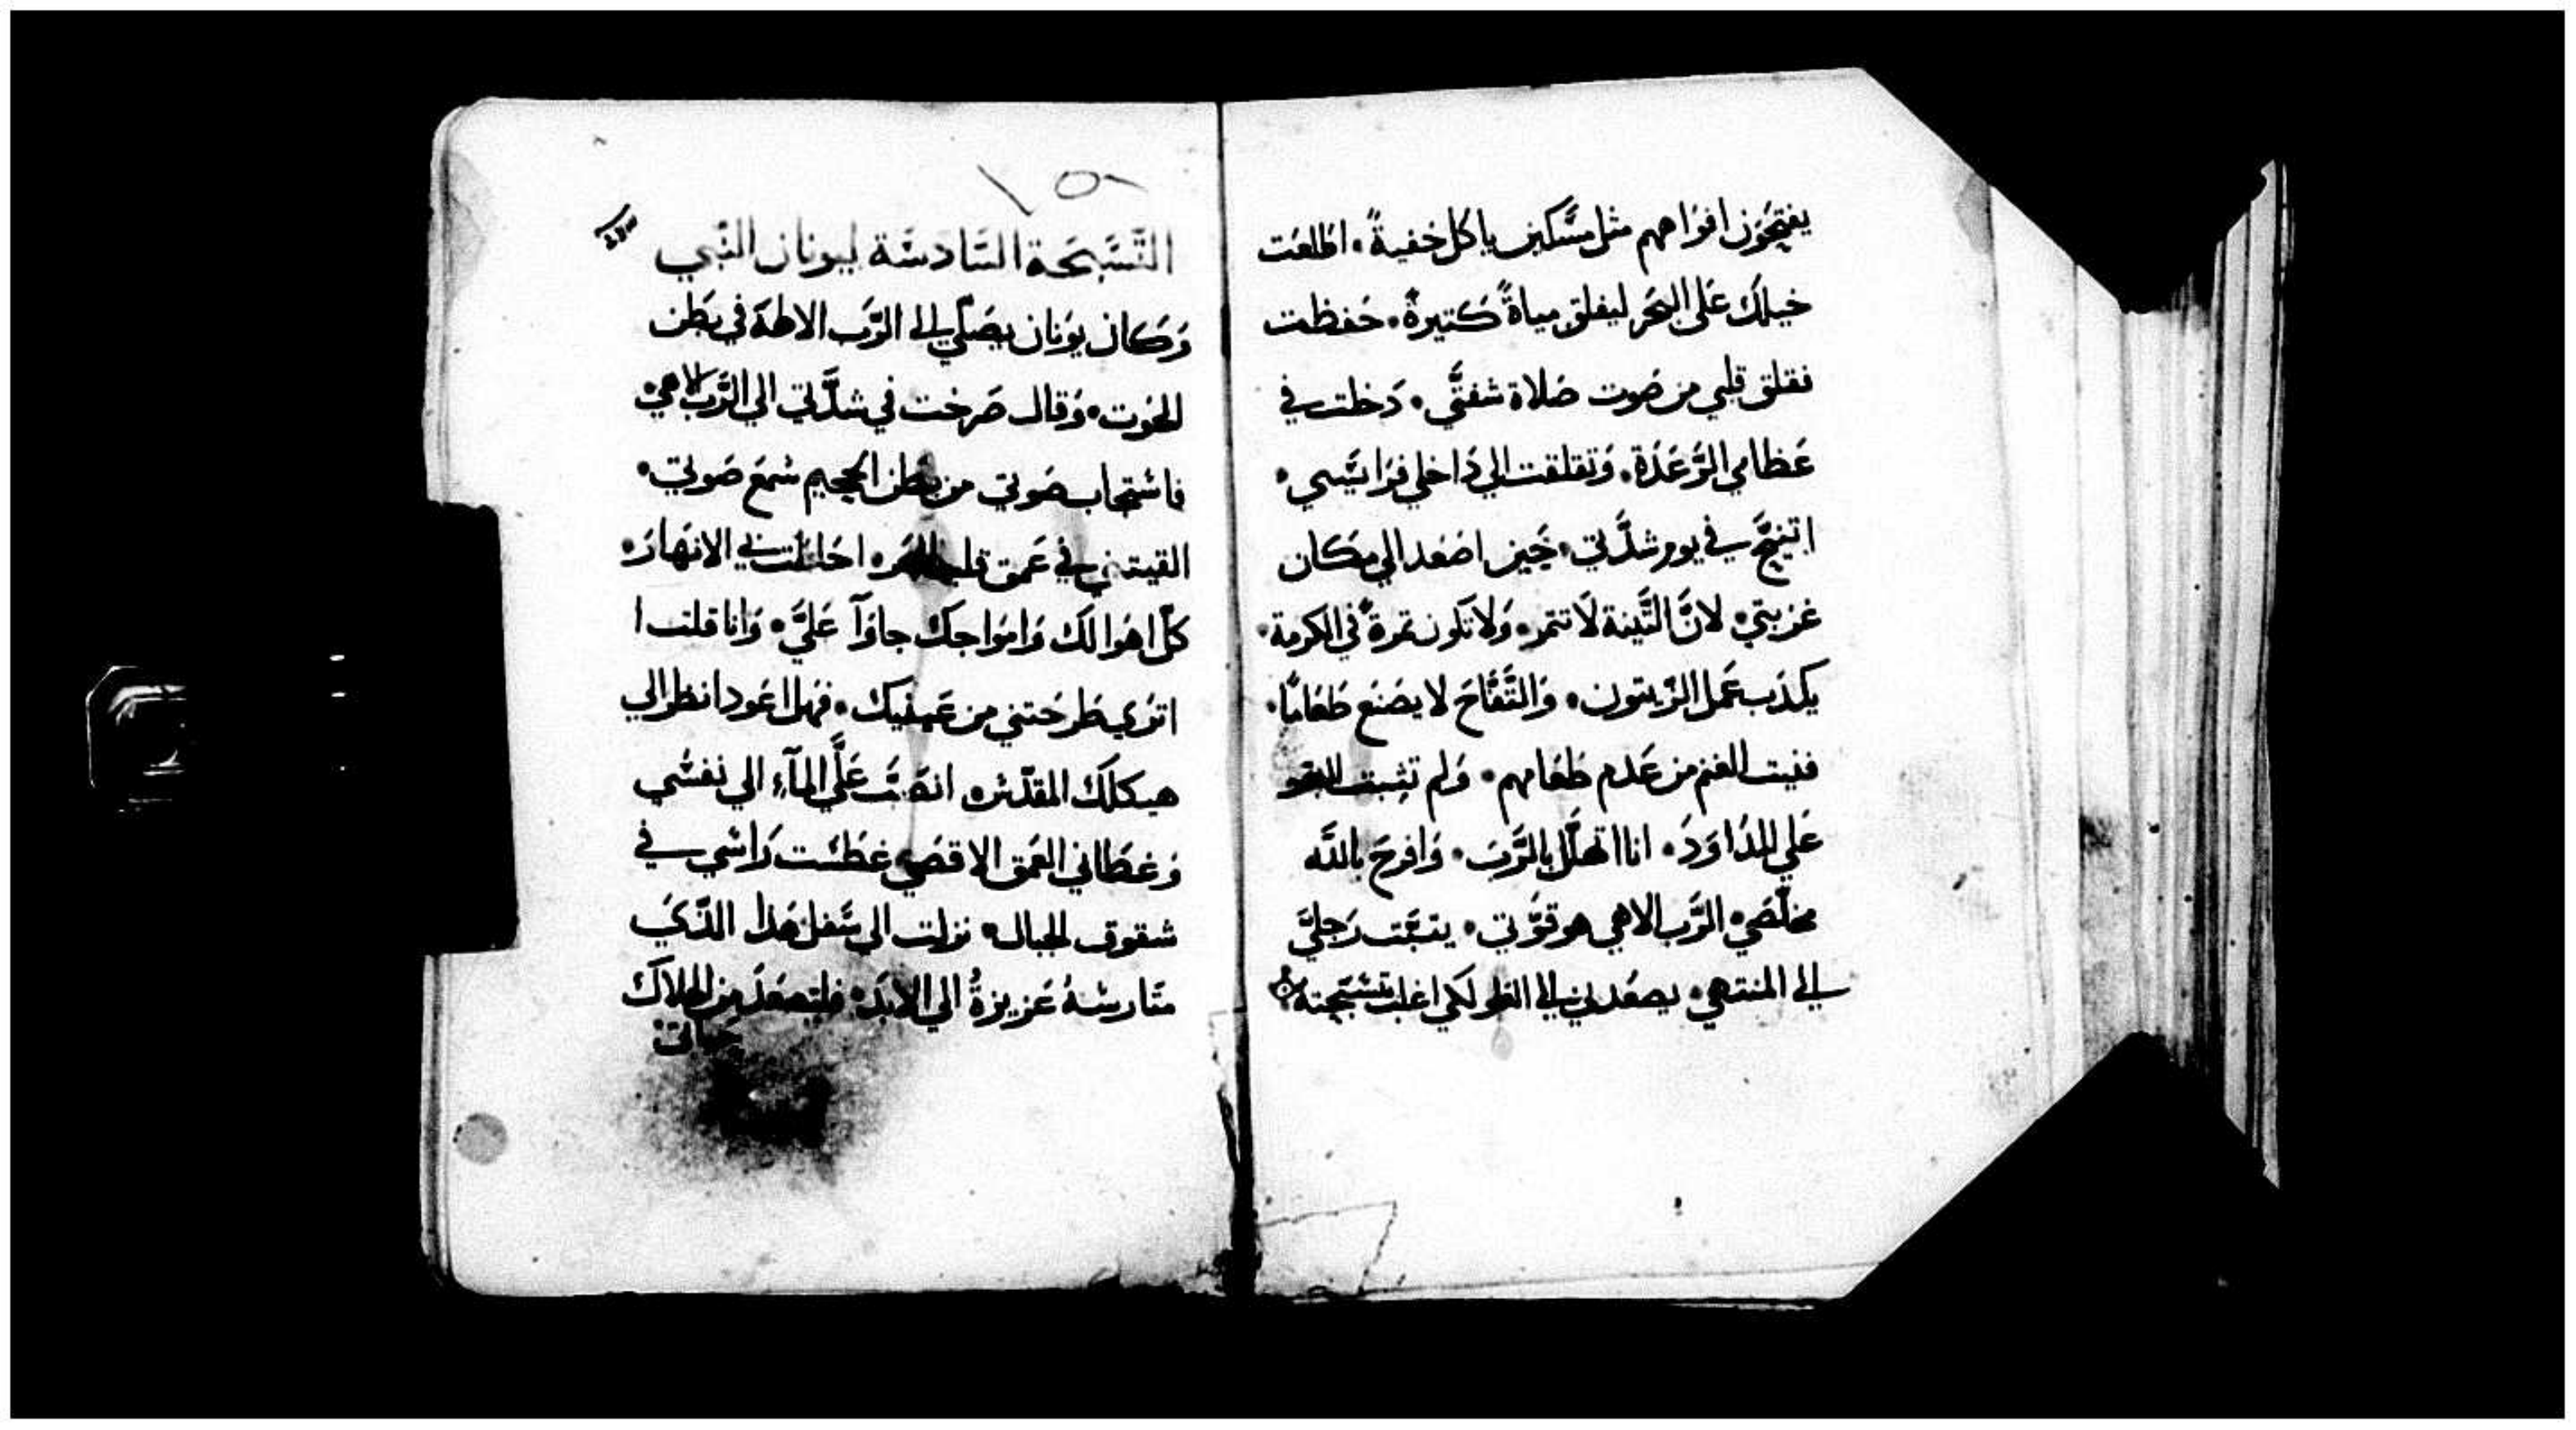 يفتحَوُن افوَاههم مثل مسَّكين ياكل خفيةً. اطلعُت
خيلَك عَلى البحَر ليفلق مياةً كَتيرةً. حَفظت
فقلق قلبي من صَوت صَلاة شفتَّي. دَخلت في
عَظامي الرَّعَدَة. وَتقلقت الي دَاخلي فرَايسَّي.
اتنيَّح في يوم شدَّتي. حَين اصَعَد الي مَكان
غرَبتي. لانَّ التَّينة لاَ تتمر. وَلا تَكون تمرةً في الكرمة.
يكدَب عَمل الزَّيتون. وَالتَّفَّاحَ لا يصَنَع طَعَامًا.
فنيت الغنم من عَدم طَعَامهم. وَلم تثبت البقر
عَلي المدَاوَدَ. انا اتهلَّل بالرَّبَ. وَافرحَ باللَّه
مخلّصَي. الرَّب الاهي هو قوَّتي. يتبَّت رَجليَّ
الي المنتهي. يصَعَدني الي العَلو لكي اغلب بتسَبَحته
١٥٨
التَّسَّبَحَة السَّادسَّة ليونان النَّبي
وَكَان يوَنان يصَلّي الي الرَّب الالهَ في بطَن
الحَوت. وَقال صَرخت في شدَّتي الي الرَّب الاهي.
فاستجاب صَوتي من بطَن الجحيم سَمعَ صَوتي.
القيتني في عَمق قلب البحَر. احَاطت بي الانهارَ.
كلّ اهوَالَك وَامواجك جاوَآ عَليَّ. وَانا قلت ا
اترَي طَرحَتني من عَينيك. فهل اعَود انظر الي
هيكلَك المقدّس. انصَبَّ عَلَّي المآءِ الي نفسَي
وَغطَاني العَمق الاقصَي غطَست رَاسَي في
شقوق الجبال. نزلت الي سَفل هَدا الدَّي
متارسَهُ عَزيزةُ الي الابدَ. فلتصعَدَ من الهلاَك
حياتي.